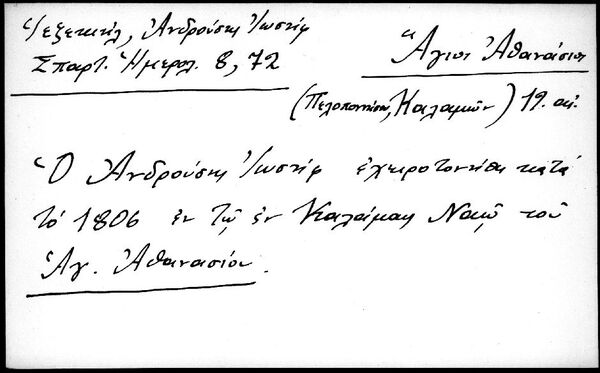 Ἰεζεκιήλ, Ἀνδρούσης Ἰωσήφ
Σπαρτ. Ἡμερολ. 8, 72
Ἅγιος Ἀθανάσιος
(Πελοπόννησος, Καλαμῶν) 19. αἰ.
Ὁ Ἀνδρούσης Ἰωσήφ ἐχειροτονήθη κατά
τό 1806 ἐν τῷ ἐν Καλάμαις Ναῷ τοῦ
Ἁγ. Ἀθανασίου.